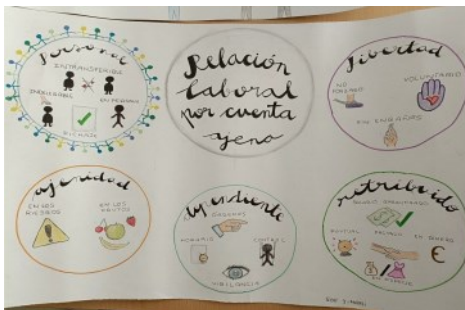 Personal
INTRANSFERIBLE
INDELEGABLE
EN PERSONA
Relación
laboral
por cuenta
ajena
Libertad
NO
FORZADO
VOLUNTARIO
SIN ENGAÑOS
ajenidad
EN LOS
RIESGOS
EN LOS
FRUTOS
dependiente
ÓRDENES
HORARIO
CONTROL
VIGILANCIA
retribuido
SALARIO GARANTIZADO
PUNTUAL
PACTADO
EN DINERO
€